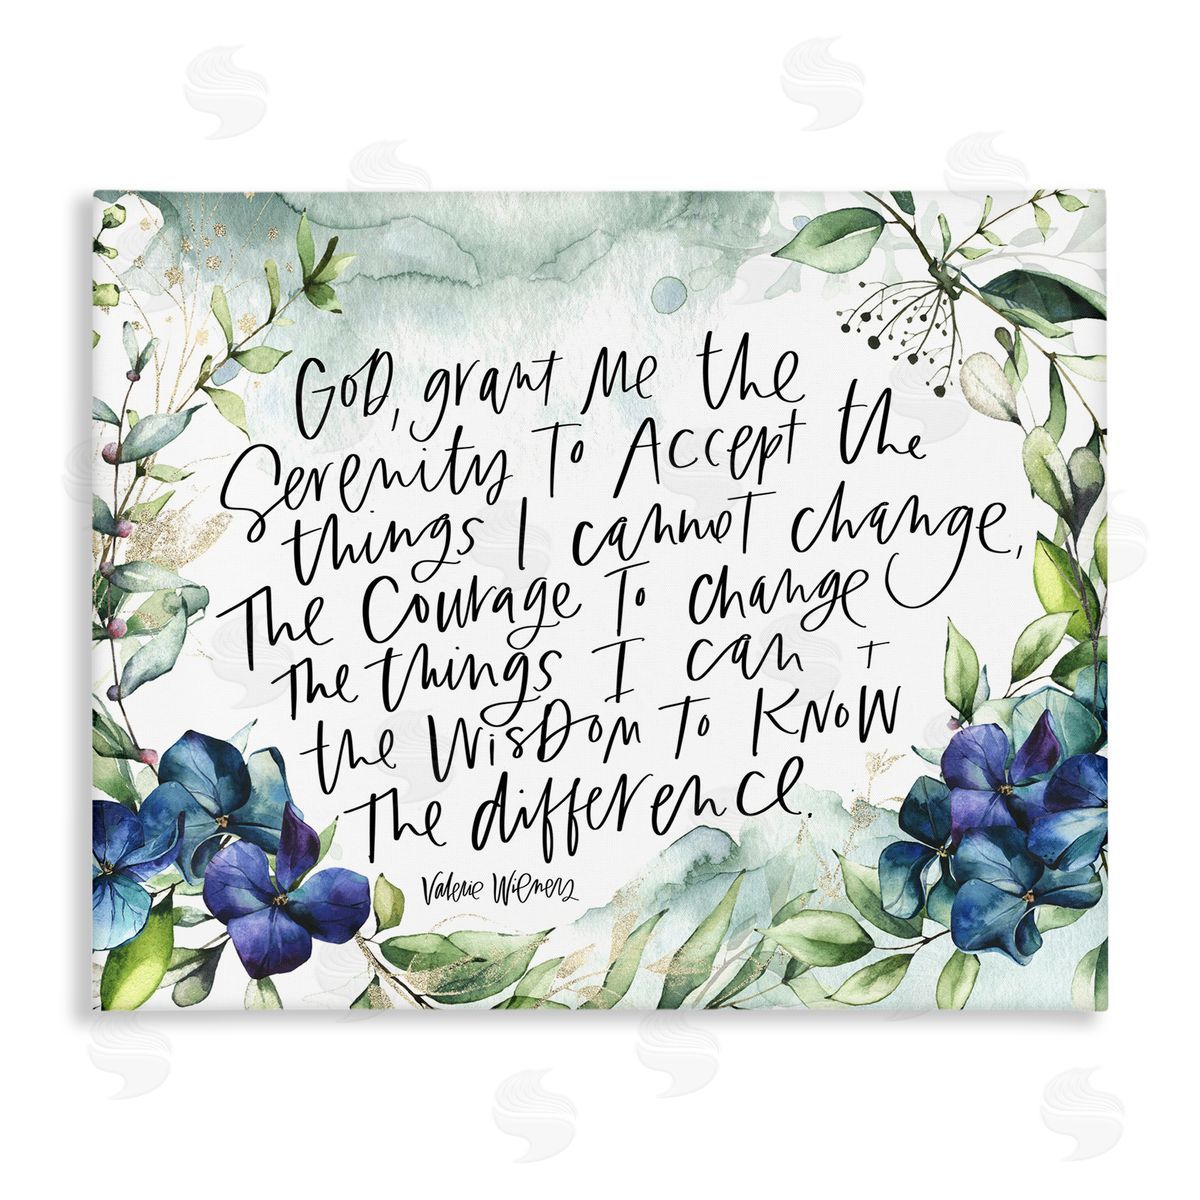 God, grant me the
Serenity to Accept the
things I cannot change,
The Courage to change
the things I can +
the Wisdom to Know
the difference.
Valerie Wieners